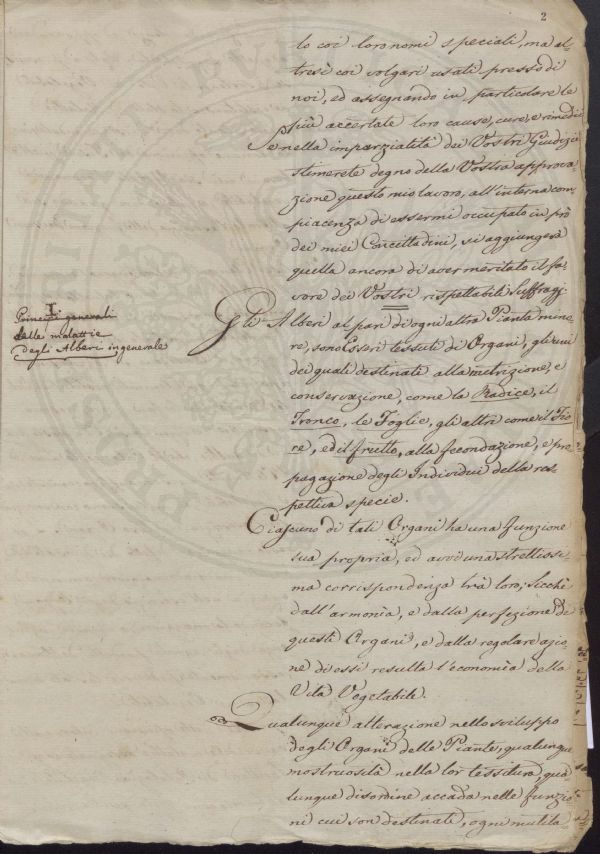 2
lo coi loro nomi speciali, ma al-
tresì coi volgari usati presso di
noi, ed assegnando in particolare le
più accertate loro cause, cure, e rimedi
e nella imparzialità dei Vostri Giudizi
stimerete degno della Vostra approva-
zione questo mio lavoro, all'interna com-
piacenza di essermi occupato in prò
dei miei Concittadini, si aggiungerà
quella ancora di aver meritato il fa-
vore dei Vostri rispettabili Suffragj
I
Principj generali
delle malattie
degli Alberi in generale
Gli Alberi al pari di ogni altra Pianta mino-
re, sono Esseri tessuti di Organi, gli uni
dei quali destinati alla nutrizione, e
conservazione, come la Radice, il
Tronco, le Foglie, gli altri come il Fio-
re, ed il frutto, alla fecondazione, e pro-
pagazione degli Individui della res-
pettiva specie.
Ciascuno di tali Organi ha una funzione
sua propria, ed avvi una strettissi-
ma corrispondenza trà loro, sicchè
dall'armonìa, e dalla perfezione di
questi Organi, e dalla regolare azio-
ne di essi resulta l'economìa della
Vita Vegetabile.
Qualunque alterazione nello sviluppo
degli Organi delle Piante, qualunque
mostruosità nella lor tessitura, qua-
lunque disordine accada nelle funzio-
ni cui son destinati, ogni mutila-